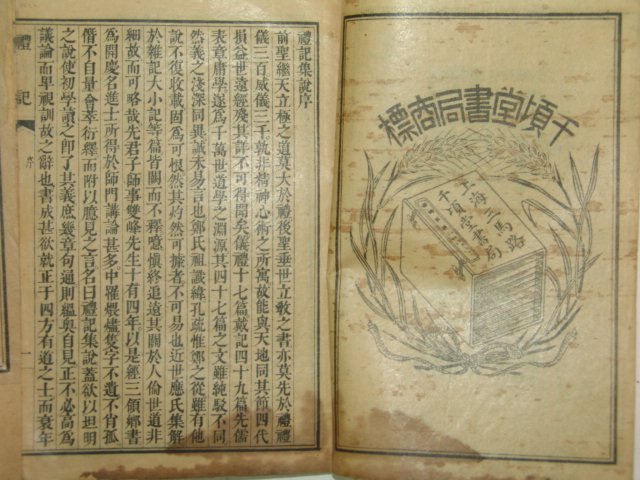 千頃堂書局商標
上海三馬路
千頃堂書局
禮記集說序
前聖繼天立極之道莫大於禮後聖垂世立教之書亦莫先於禮禮
儀三百威儀三千孰非精神心術之所寓故能與天地同其節四代
損益世遠經殘其詳不可得聞矣儀禮十七篇戴記四十九篇先儒
表章庸學遂爲千萬世道學之淵源其四十七篇之文雖純駁不同
然義之淺深同異誠未易言也鄭氏祖讖緯孔疏惟鄭之從雖有他
說不復收載固爲可恨然其灼然可據者不可易也近世應氏集解
於雜記大小記等篇皆闕而不釋噫愼終追遠其關於人倫世道非
細故而可略哉先君子師事雙峰先生十有四年以是經三領鄉書
爲開慶名進士所得於師門講論甚多中罹煨燼隻字不遺不肖孤
僭不自量會萃衍繹而附以臆見之言名曰禮記集說蓋欲以坦明
之說使初學讀之即了其義庶幾章句通則蘊奧自見正不必高爲
議論而卑視訓故之辭也書成甚欲就正于四方有道之士而衰年
禮記 序 一